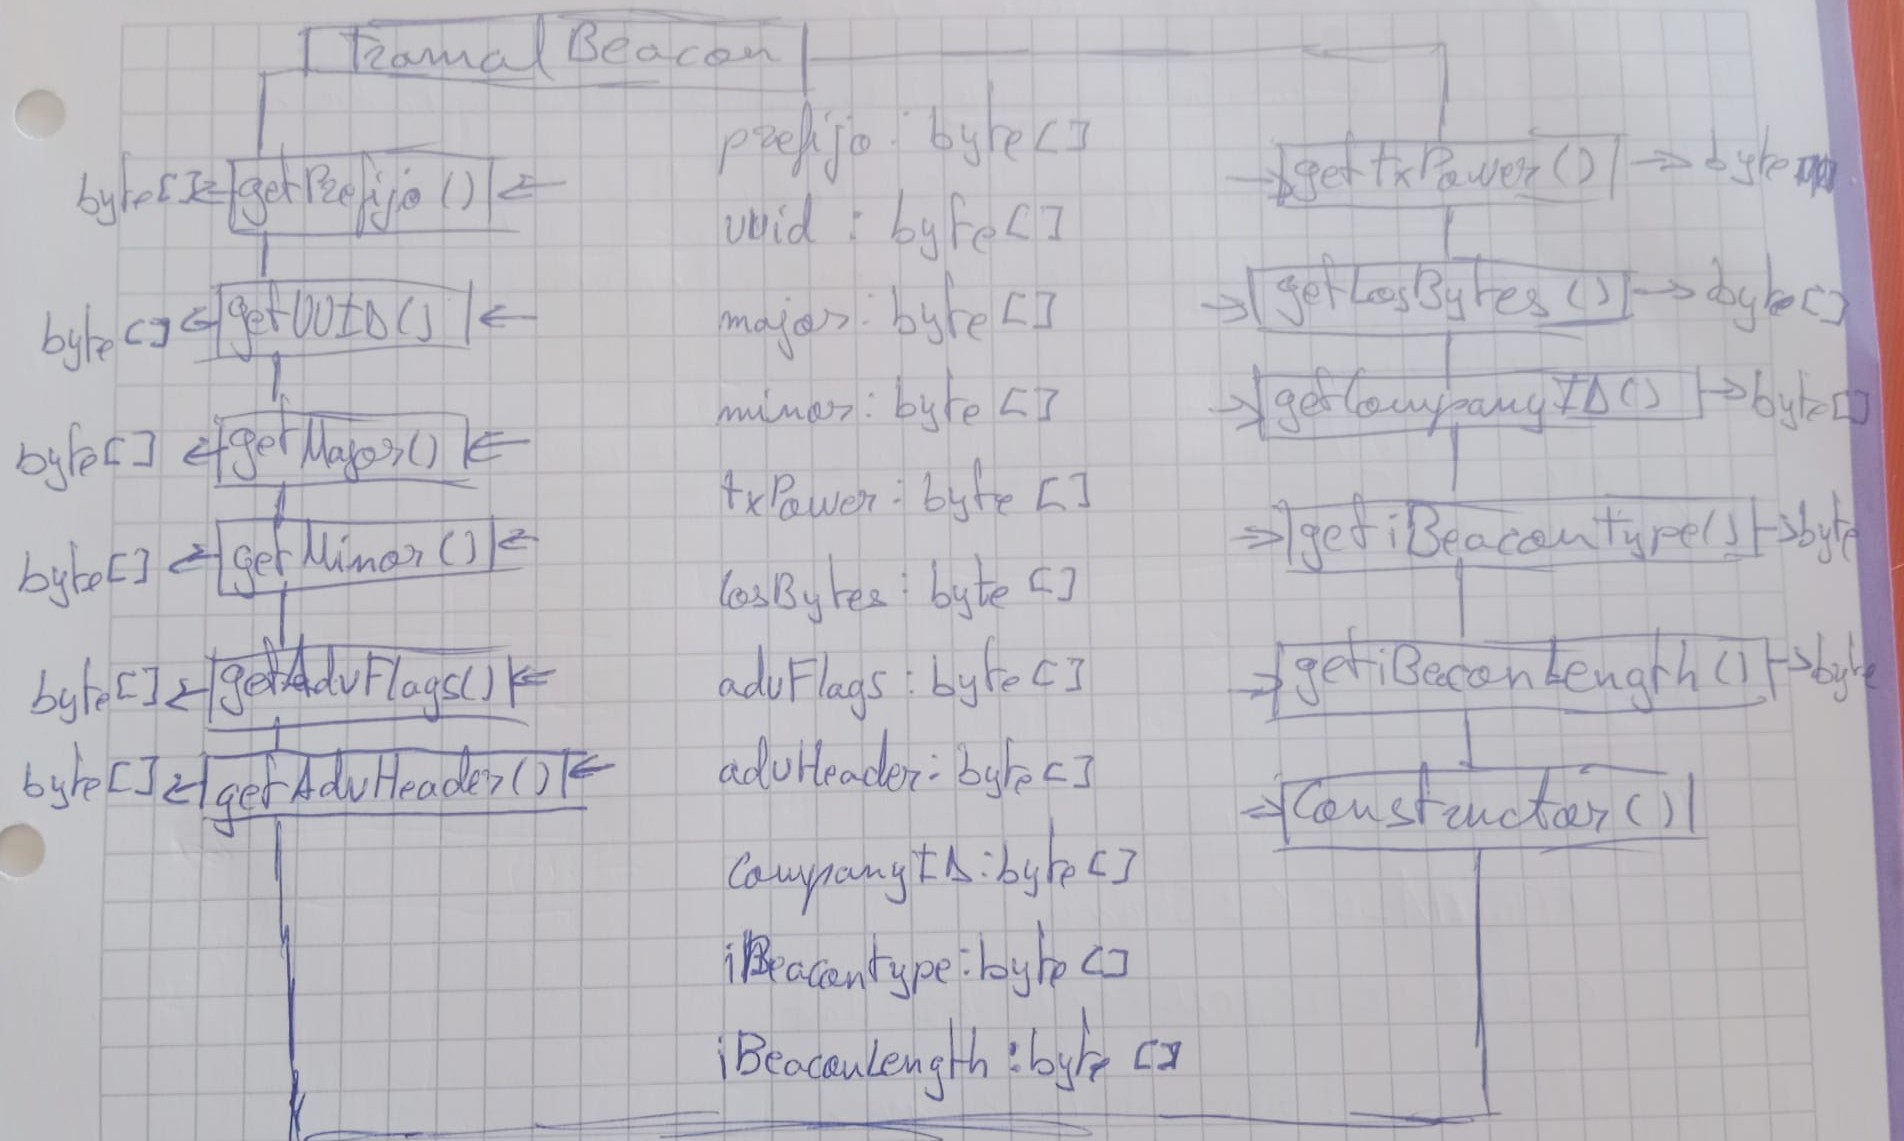 TramaIBeacon
byte[] getPrefijo()
byte[] getUUID()
byte[] getMajor()
byte[] getMinor()
byte[] getAdvFlags()
byte[] getAdvHeader()
prefijo: byte[]
uuid: byte[]
major: byte[]
minor: byte[]
txPower: byte[]
losBytes: byte[]
advFlags: byte[]
advHeader: byte[]
CompanyID: byte[]
iBeacontype: byte[]
iBeaconLength: byte[]
getTxPower() byte
getLosBytes() byte[]
getCompanyID() byte[]
getiBeacontype() byte
getiBeaconLength() byte
Constructor()